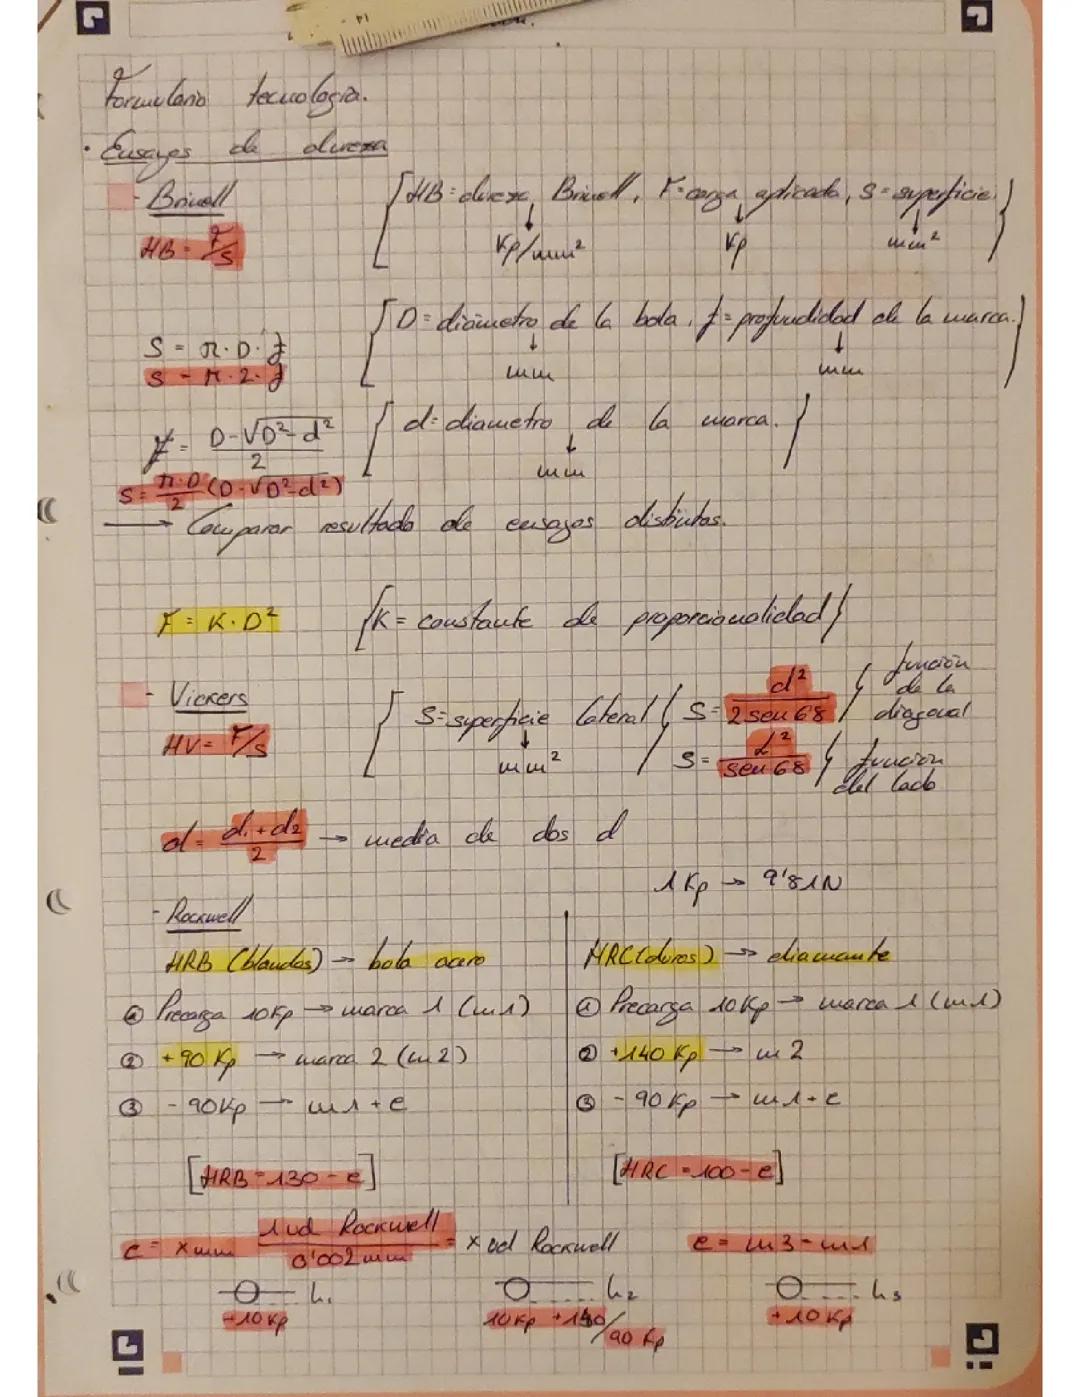 Formulario tecnología.
· Ensayos de dureza
- Brinell
{HB = dureza Brinell, F = carga aplicada, S = superficie.}
HB = F/S
↓ Kp/mm² ↓ Kp ↓ mm²
{D = diámetro de la bola, f = profundidad de la marca.}
S = π · D · f
↓ mm ↓ mm
S = π · 2 · f
f = (D - √D² - d²)/2 {d = diametro de la marca.}
↓ mm
S = π·D/2 (D - √D² - d²)
→ Comparar resultado de ensayos distintos.
F = K · D² {K = constante de proporcionalidad}
- Vickers
{S = superficie lateral { S = d²/2 sen 68 } función de la diagonal
HV = F/S
↓ mm²
S = L²/sen 68 } función del lado
d = d₁ + d₂/2 → media de dos d
1 Kp → 9'81N
- Rockwell
HRB (blandos) → bola acero
① Precarga 10Kp → marca 1 (m1)
② +90 Kp → marca 2 (m2)
③ - 90Kp → m1 + e
[HRB = 130 - e]
HRC (duros) → diamante
① Precarga 10Kp → marca 1 (m1)
② +140 Kp → m2
③ - 90 Kp → m1 + e
[HRC = 100 - e]
e = x mm 1 ud Rockwell/0'002 mm = x ud Rockwell e = m3 - m1
h₁ h₂ h₃
10Kp 10Kp + 140/90 Kp +10Kp